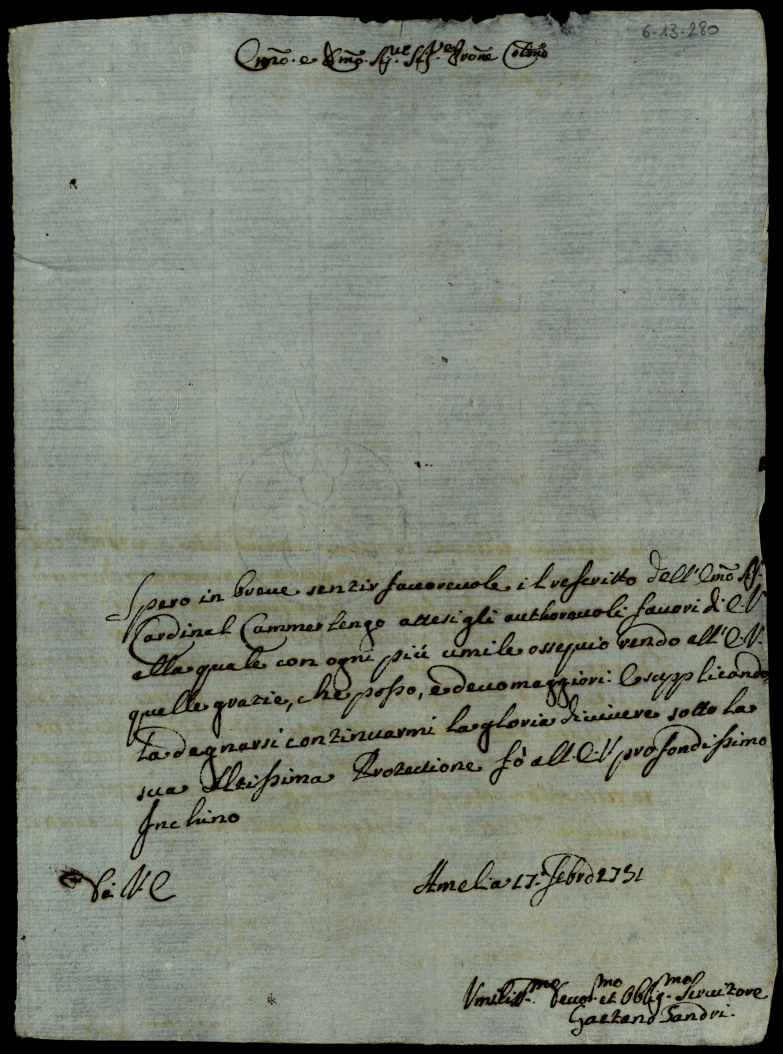 6-13-280
Em̃o. e Rm̃o. Sig.re Sig.re Prõne Colm̃o
Spero in breve sentir favorevole il rescritto dell'Em̃o Sig.
Cardinal Cammerlengo attesi gli authorevoli favori di E V
alla quale con ogni più umile ossequio rendo all'E V.
quelle grazie, che posso, e devo maggiori: E supplicando
la degnarsi continuarmi la gloria di vivere sotto la
sua Altissima Protectione fò all'E V profondissimo
Inchino
Di V E
Amelia 17. Febro 1731
Umiliss.mo Devot.mo et Oblig.mo Servitore
Gaetano Sandri.